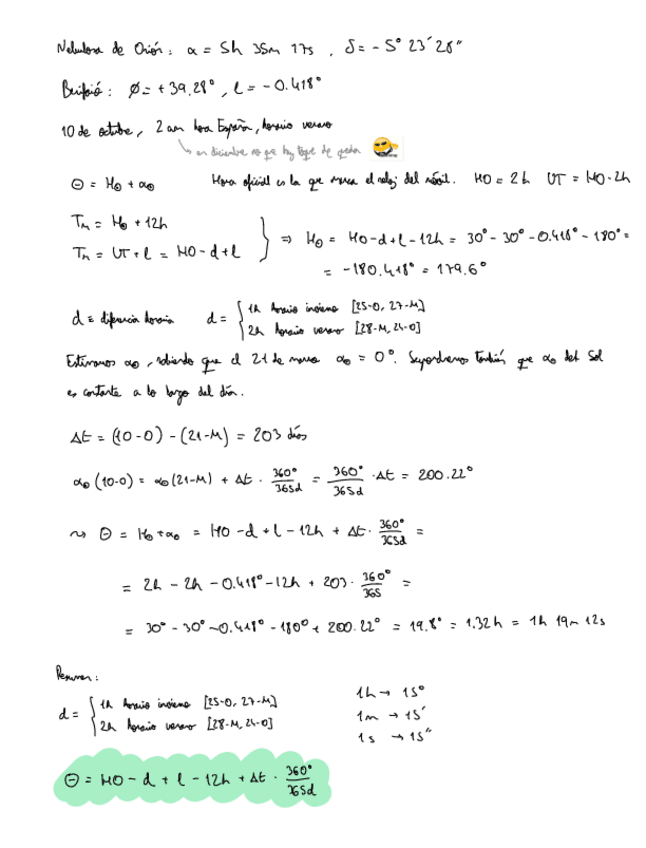 Nebulosa de Orión: α = 5h 35m 17s , δ = - 5° 23´ 28´´
: ø = + 39.28° , l = - 0.418°
10 de octubre, 2 am hora España, horario verano
en diciembre no que hay toque de queda
Θ = H⊙ + α⊙ Hora oficial es la que marca el reloj del móvil. HO = 2h UT = HO - 2h
Tm = H⊙ + 12h
Tm = UT + l = HO - d + l
⇒ H⊙ = HO - d + l - 12h = 30° - 30° - 0.418° - 180° =
= -180.418° = 179.6°
d ≡ diferencia horaria d = { 1h horario invierno [25-O, 27-M]
2h horario verano [28-M, 24-O]
Estimamos α⊙, sabiendo que el 21 de marzo α⊙ = 0°. Supondremos también que α⊙ del Sol
es constante a lo largo del día.
Δt = (10-O) - (21-M) = 203 días
α⊙ (10-O) = α⊙ (21-M) + Δt · 360°/365d = 360°/365d · Δt = 200.22°
⇝ Θ = H⊙ + α⊙ = HO - d + l - 12h + Δt · 360°/365d =
= 2h - 2h - 0.418° - 12h + 203 · 360°/365 =
= 30° - 30° - 0.418° - 180° + 200.22° = 19.8° = 1.32h = 1h 19m 12s
Resumen:
d = { 1h horario invierno [25-O, 27-M]
2h horario verano [28-M, 24-O]
1h → 15°
1m → 15´
1s → 15´´
Θ = HO - d + l - 12h + Δt · 360°/365d